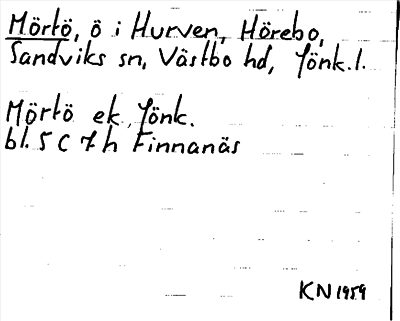 Mörtö, ö i Hurven, Hörebo,
Sandviks sn, Västbo hd, Jönk. l.
Mörtö ek. Jönk.
bl. 5 C 7 h Finnanäs
KN 1959